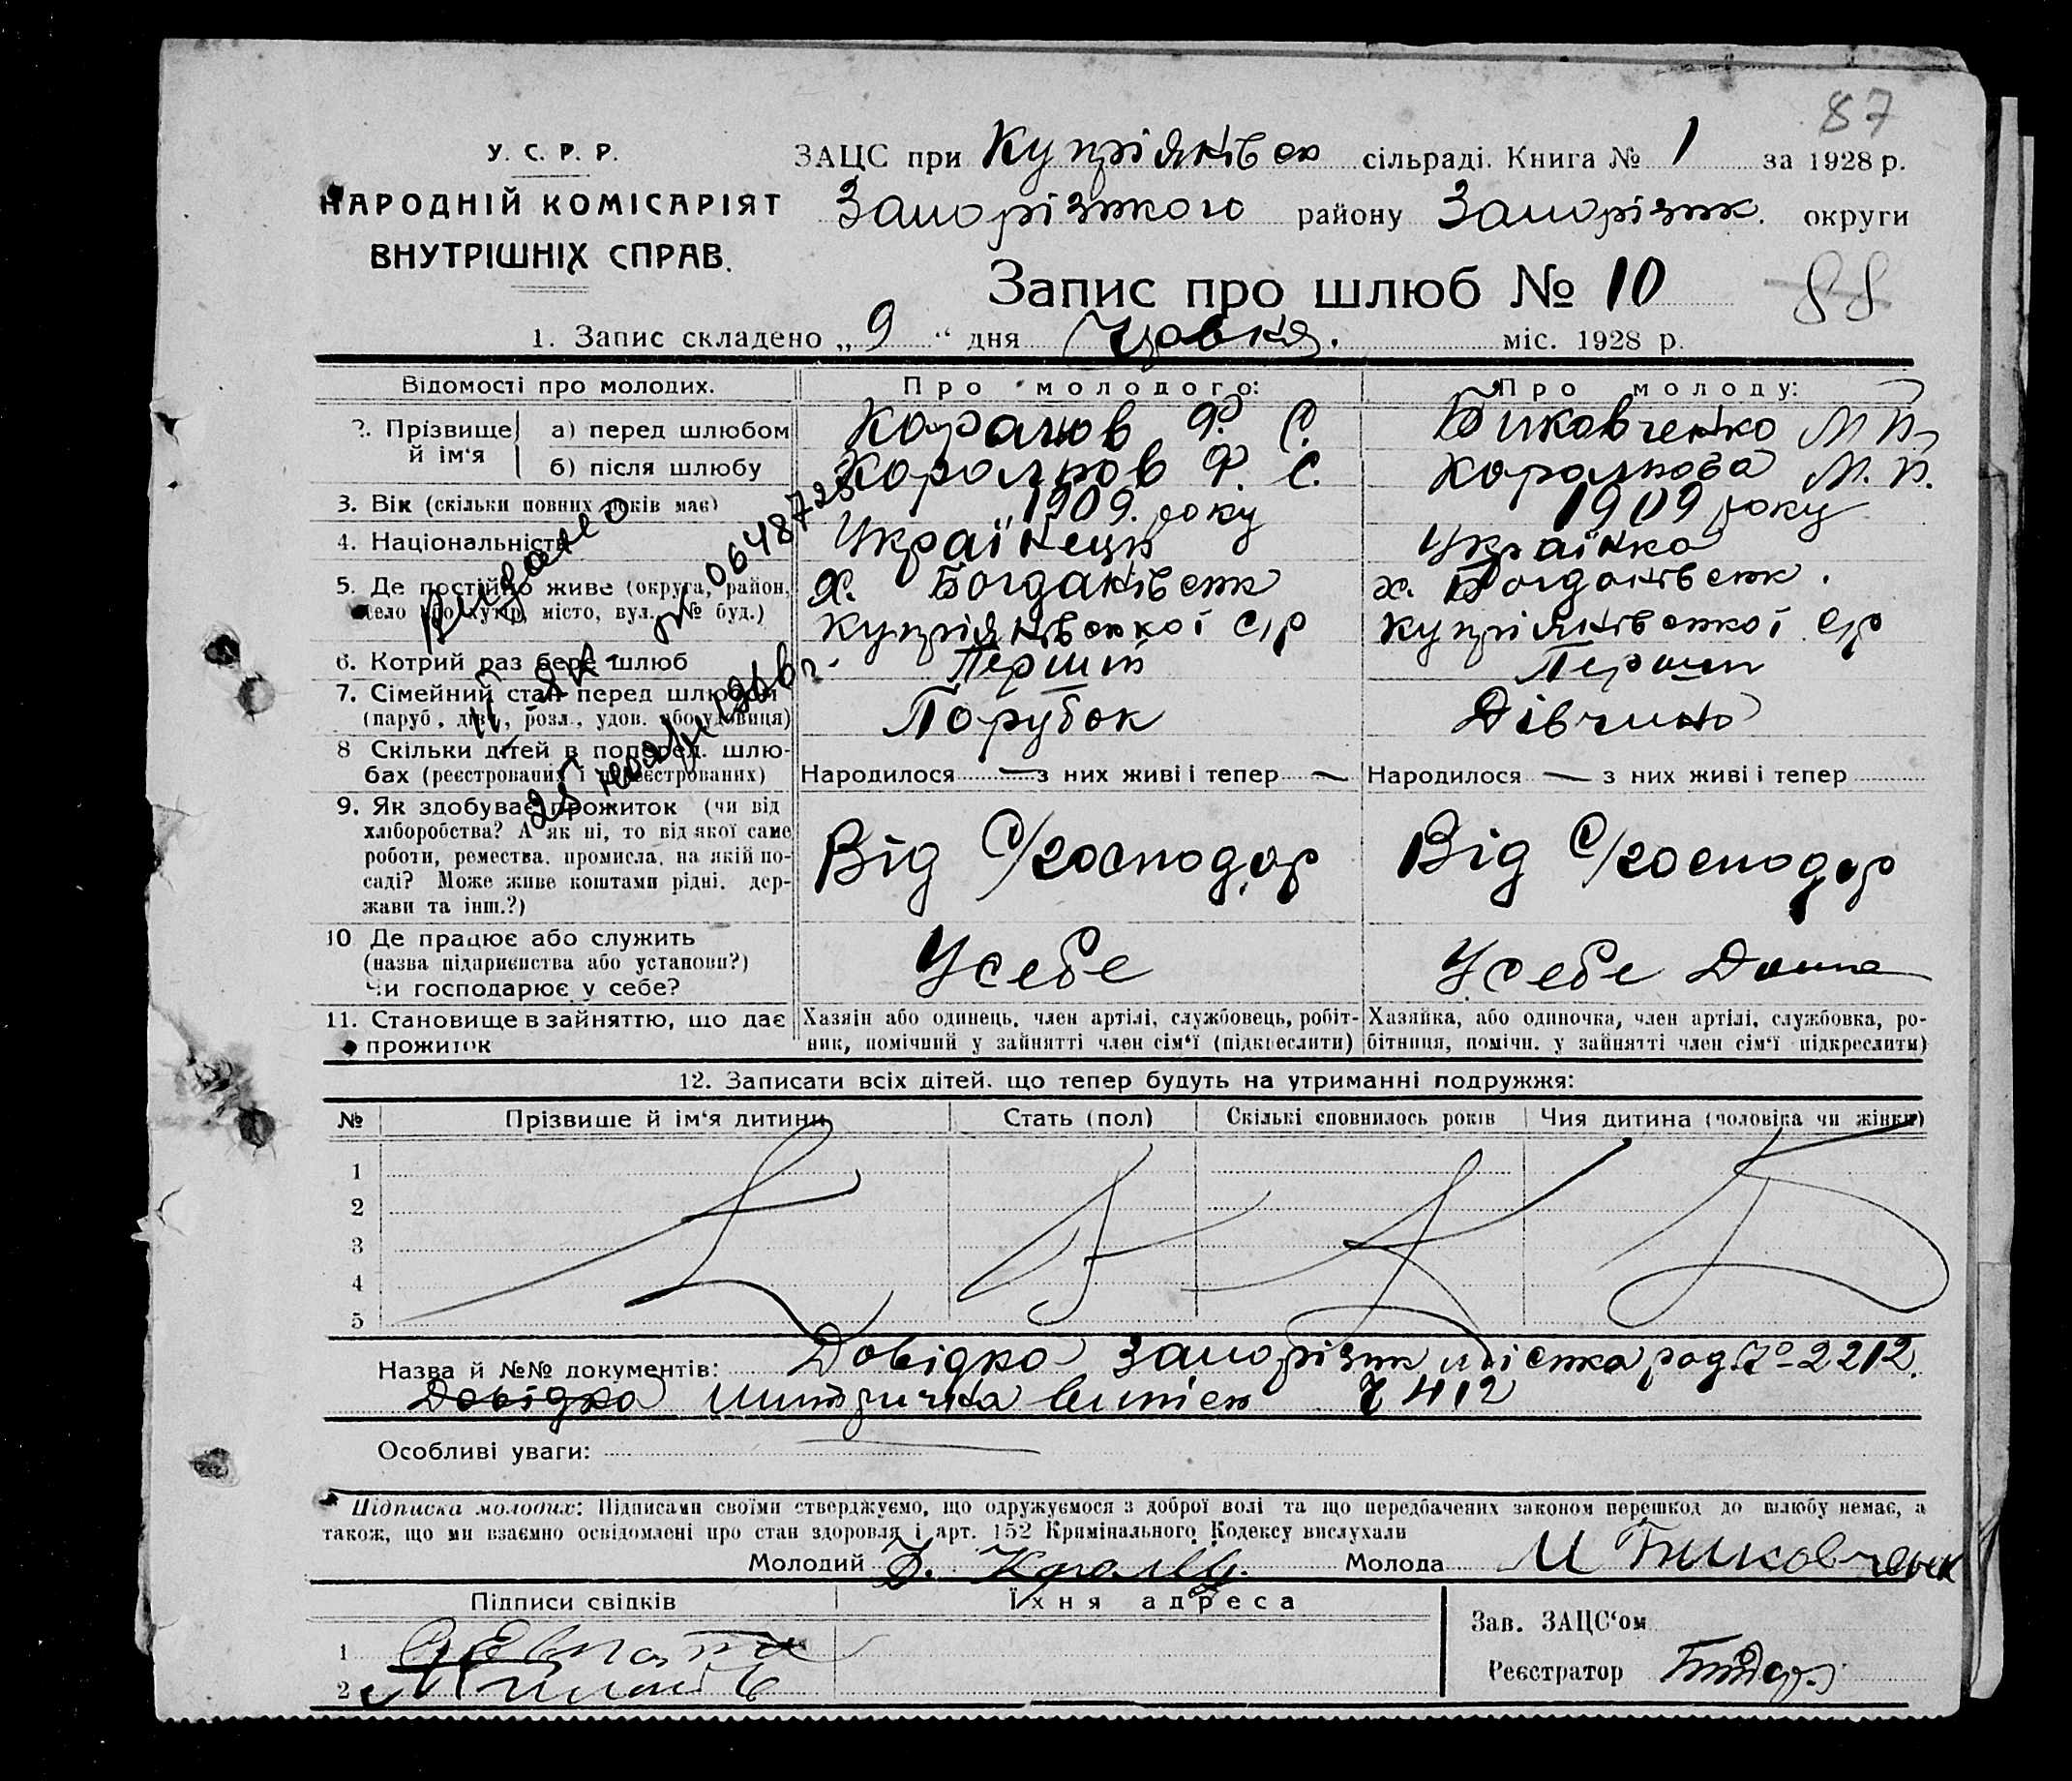 87
У. С. Р. Р.
НАРОДНІЙ КОМІСАРІЯТ
ВНУТРІШНІХ СПРАВ.
ЗАЦС при Купріянівск сільраді. Книга № 1 за 1928 р.
Запорізького району Запорізьк. округи
Запис про шлюб № 10
88
1. Запис складено „9“ дня міс. 1928 р.
Відомості про молодих.
Про молодого:
Про молоду:
2. Прізвище й ім‘я
а) перед шлюбом
Ф. С.
Биковченко М. П.
б) після шлюбу
Корольков Ф. С.
Королькова М. П.
3. Вік (скільки повних років має)
1909. року
1909 року
4. Національність
Українець
Українка
5. Де постійно живе (округа, район, село або хутір, місто, вул. № буд.)
х. Богданівськ
Купріянівської С/р
х. Богданівськ.
Купріянівської С/р
6. Котрий раз бере шлюб
Перший
Перший
7. Сімейний стан перед шлюбом
(паруб., дівч., розл., удов. або удовиця)
Парубок
Дівчина
8 Скільки дітей в поперед. шлю-
бах (реєстрованих і нереєстрованих)
Народилося — з них живі і тепер —
Народилося — з них живі і тепер
9. Як здобуває прожиток (чи від
хліборобства? А як ні, то від якої саме
роботи, ремества, промисла, на якій по-
саді? Може живе коштами рідні, дер-
жави та інш.?)
Від С/господар
Від С/господар
10 Де працює або служить
(назва підприєнства або установи?)
Чи господарює у себе?
У себе
У себе Дома
11. Становище в зайняттю, що дає
прожиток
Хазяін або одинець, член артілі, службовець, робіт-
ник, помічний у зайнятті член сім‘ї (підкреслити)
Хазяйка, або одиночка, член артілі, службовка, ро-
бітниця, помічн. у зайнятті член сім‘ї підкреслити)
видано
06487
12. Записати всіх дітей, що тепер будуть на утриманні подружжя:
№
Прізвише й ім‘я дитини
Стать (пол)
Скількі сповнилось років
Чия дитина (чоловіка чи жінки)
1
2
3
4
5
Назва й №№ документів: Довідка Запорізьк 2212.
Довідка
Особливі уваги:
Підписка молодих: Підписами своїми стверджуємо, що одружуємося з доброї волі та що передбачених законом перешкод до шлюбу немає, а
також, що ми взаємно освідомлені про стан здоровля і арт. 152 Кримінального Кодексу вислухали
Молодий Ф.
Молода М Биковченк
Підписи свідків
Їхня адреса
1
2
Зав. ЗАЦС‘ом
Реєстратор